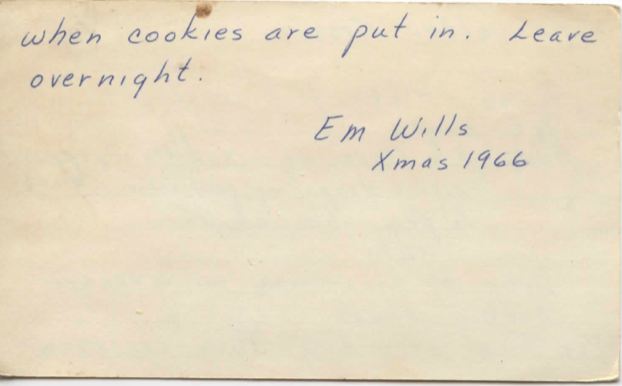 when cookies are put in. Leave
overnight.
Em Wills
Xmas 1966